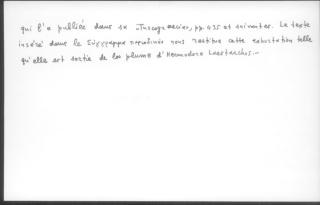 qui l'a publiée dans sa „Turcograecia", pp. 435 et suivantes. Le texte
inséré dans le Σύγγραμμα nous restitue cette exhortation telle
qu'elle est sortie de la plume d'Hermodore Lestarchos.-